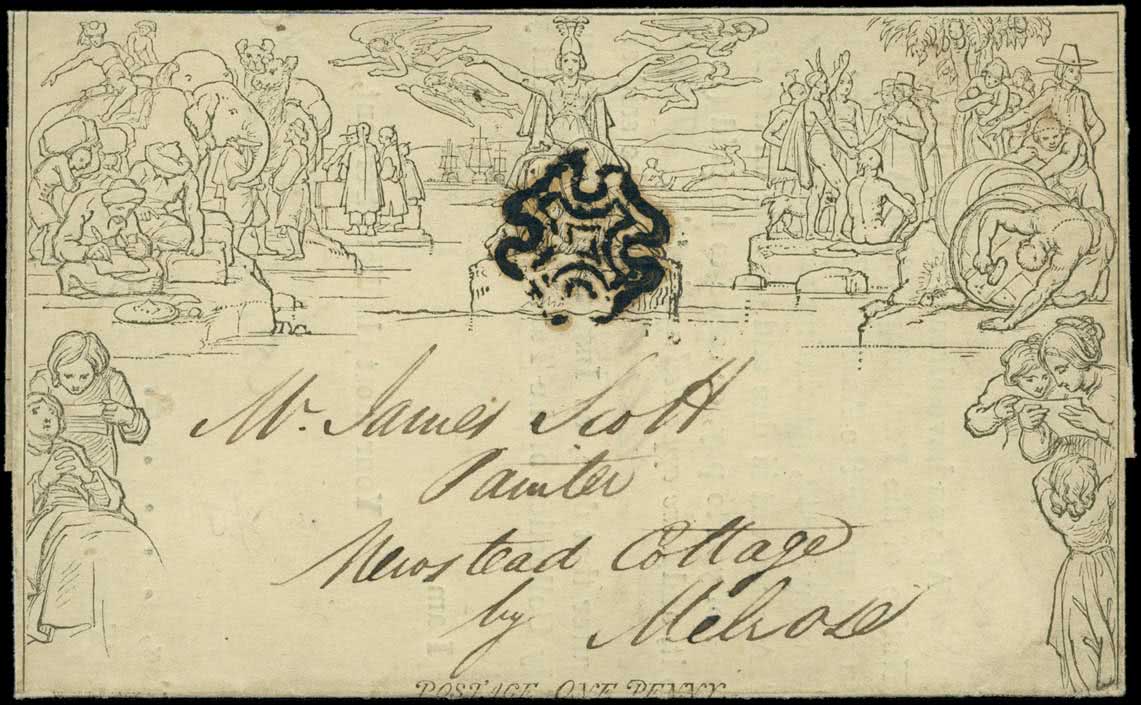 Mr. James Scott
Painter
Newstead Cottage
by Melrose
POSTAGE ONE PENNY